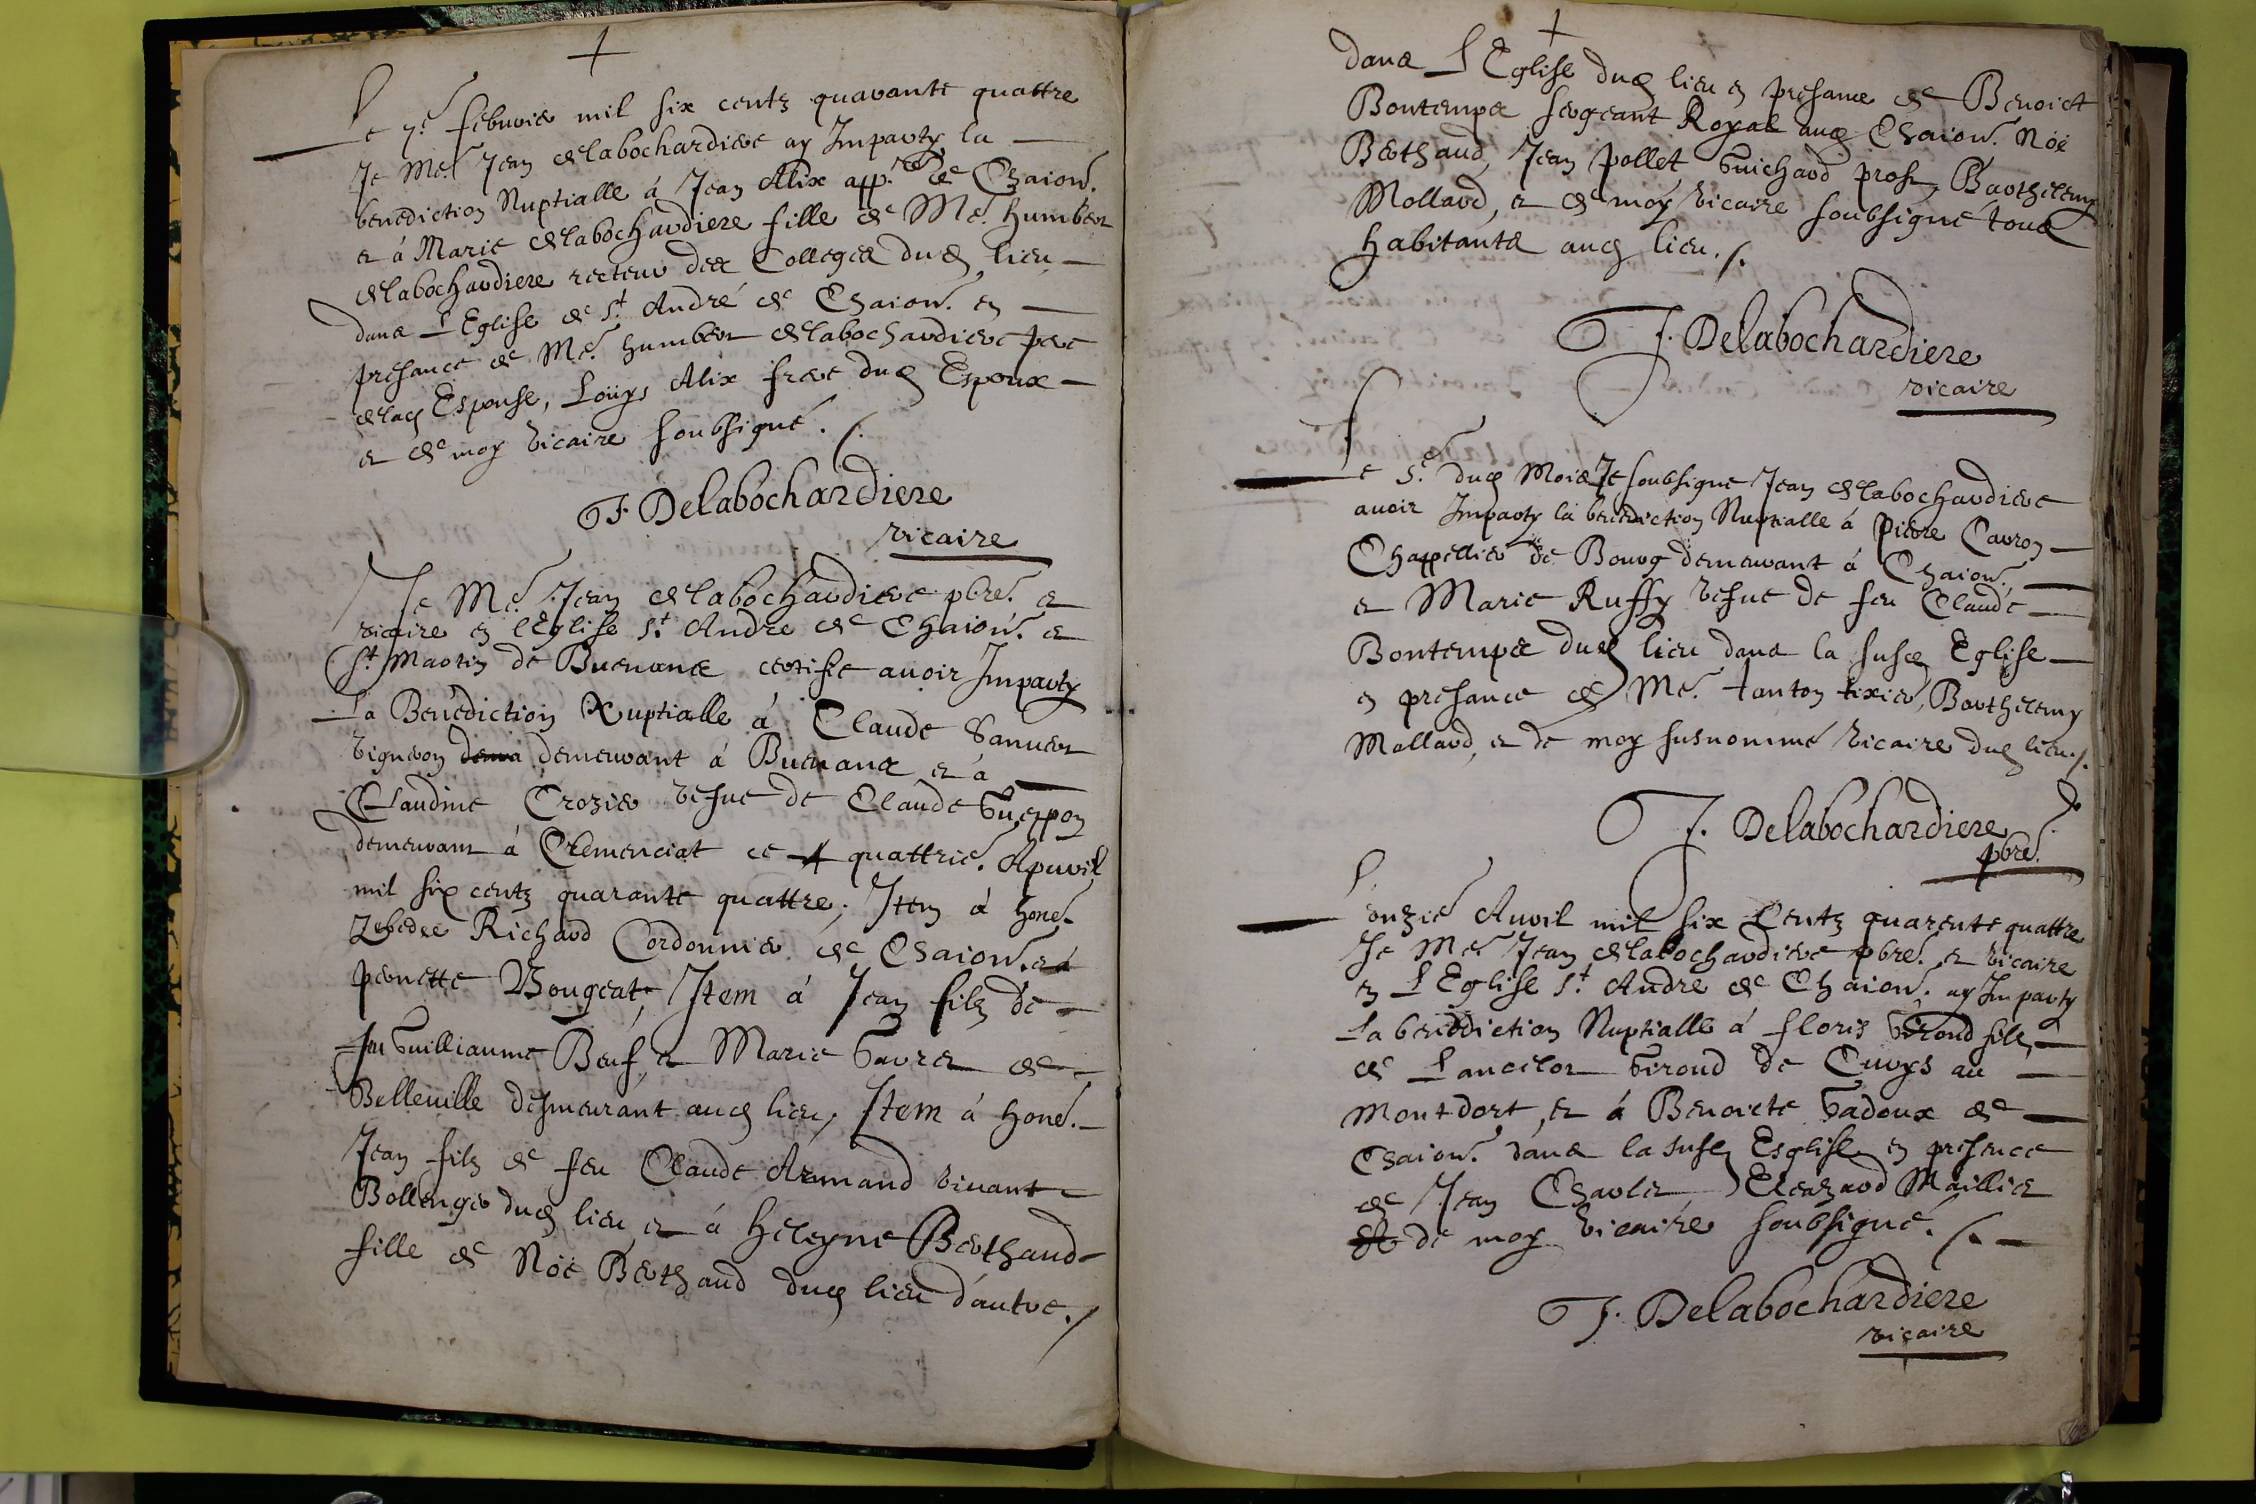 Le 7e. febvrier mil six centz quarante quattre
Je Me. Jean Delabochardiere ay Imparty la
benediction Nuptialle à Jean Alix app.re de Chaion.
et à Marie delabochardiere fille de Me. humbert
delabochardiere recteur des Colleges dud. lieu
dans L'Eglise de St. André de Chaion. en
presance de Me. humbert delabochardiere pere
de lad. Espouse, Loüys Alix frere dud. Espoux
et de moy vicaire soubsigné./.
J. Delabochardiere
vicaire
Je Me. Jean delabochardiere pbre. et
vicaire en l'Eglise St. Andre de Chaion. et
St. Martin de Buenans certifie avoir Imparty
La Benediction Nuptialle à Claude
vigneron demeurant à Buenans et à
Claudine Crozier vefve de Claude Gueppon
demeurant à Clemenciat ce quattrie. Apuril
mil six centz quarante quattre; Item à hone.
Zebedee Richard Cordonnier de Chaion. et à
pernette Bougeat; Item à Jean filz de
feu Guilliaume Beuf, et Marie Gavret de
Belleville desmeurant aud. lieu; Item à hone.
Jean filz de feu Claude Armand vivant
Bollenger dud. lieu et à heleyne Berthaud
fille de Nöe Berthaud dud. lieu d'autre./
dans L'Eglise dud. lieu en presance de Benoict
Bontemps sergeant Royal aud. Chaion. Nöe
Berthaud, Jean pollet, Guichard prost, Barthelemy
Mollard, et de moy vicaire soubsigné tous
habitants aud. lieu./.
J. Delabochardiere
vicaire
Le 5e. dud. Mois Je soubsigne Jean delabochardiere
avoir Imparty la benediction Nuptialle à Pierre Carron
Chappellier de Bourg demeurant à Chaion.
et Marie Ruffy vefve de feu Claude
Bontemps dud. lieu dans la susd. Eglise
en presance de Me. tanton tixier, Barthelemy
Mollard, et de moy susnommé vicaire dud. lieu./.
J. Delabochardiere
pbre.
L'onzie. Avril mil six Centz quarente quattre
Je Me. Jean delabochardiere pbre. et vicaire
en L'Eglise St. Andre de Chaion. ay Imparty
La benediction Nuptialle à floris Giroud filz
de Lancelot Giroud de Curys au
montdort, et à Benoicte Gadoux de
Chaion. dans la susd. Esglise en presence
de Jean Charlet, Eleazard Maillier
et de moy vicaire soubsigné./.
J. Delabochardiere
vicaire